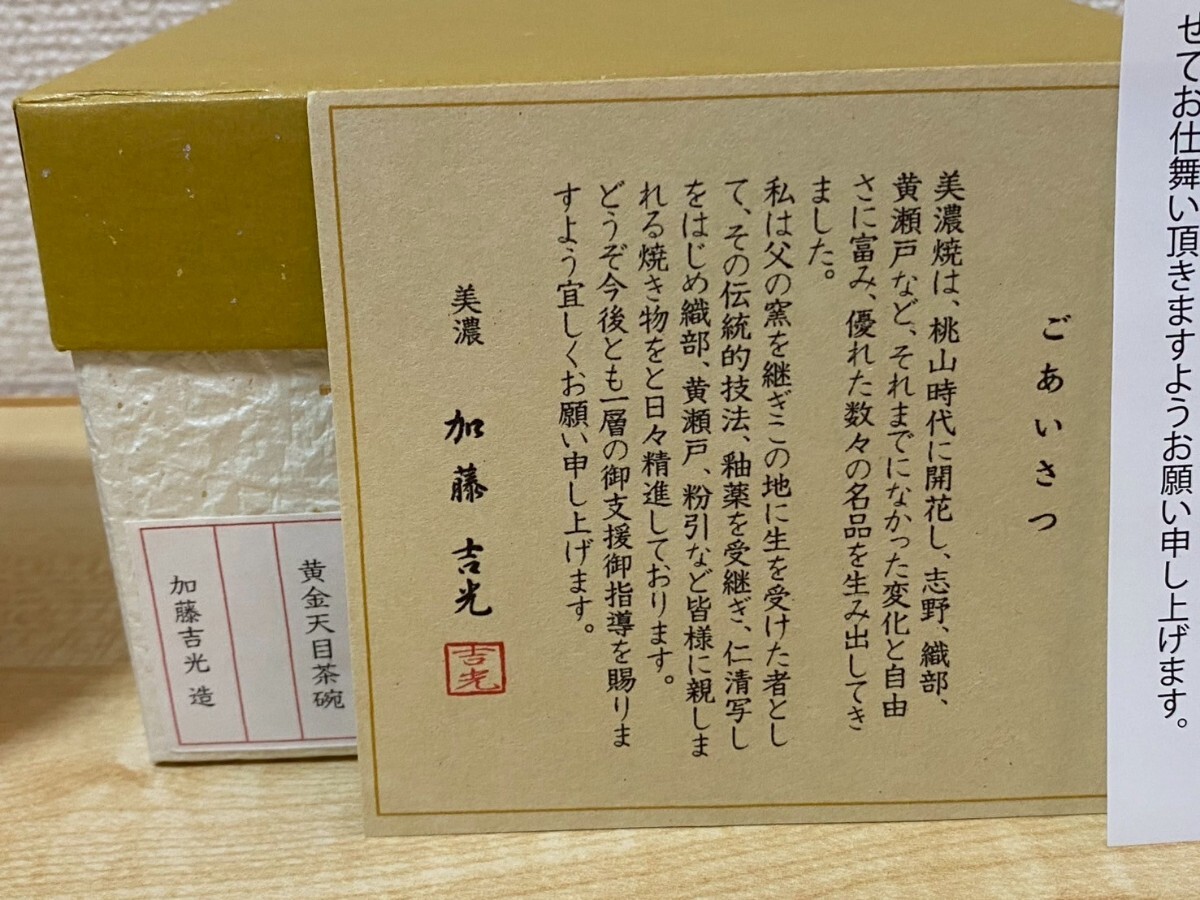 せてお仕舞い頂きますようお願い申し上げます。
ごあいさつ
美濃焼は、桃山時代に開花し、志野、織部、
黄瀬戸など、それまでになかった変化と自由
さに富み、優れた数々の名品を生み出してき
ました。
私は父の窯を継ぎこの地に生を受けた者とし
て、その伝統的技法、釉薬を受継ぎ、仁清写し
をはじめ織部、黄瀬戸、粉引など皆様に親しま
れる焼き物をと日々精進しております。
どうぞ今後とも一層の御支援御指導を賜りま
すよう宜しくお願い申し上げます。
美濃 加藤吉光
吉光
黄金天目茶碗
加藤吉光 造